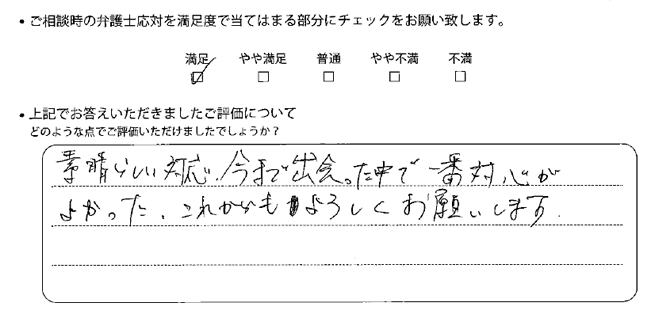 • ご相談時の弁護士応対を満足度で当てはまる部分にチェックをお願い致します。
満足 やや満足 普通 やや不満 不満
☑ □ □ □ □
• 上記でお答えいただきましたご評価について
どのような点でご評価いただけましたでしょうか?
素晴らしい対応、今まで出会った中で一番対応が
よかった、これからもよろしくお願いします.